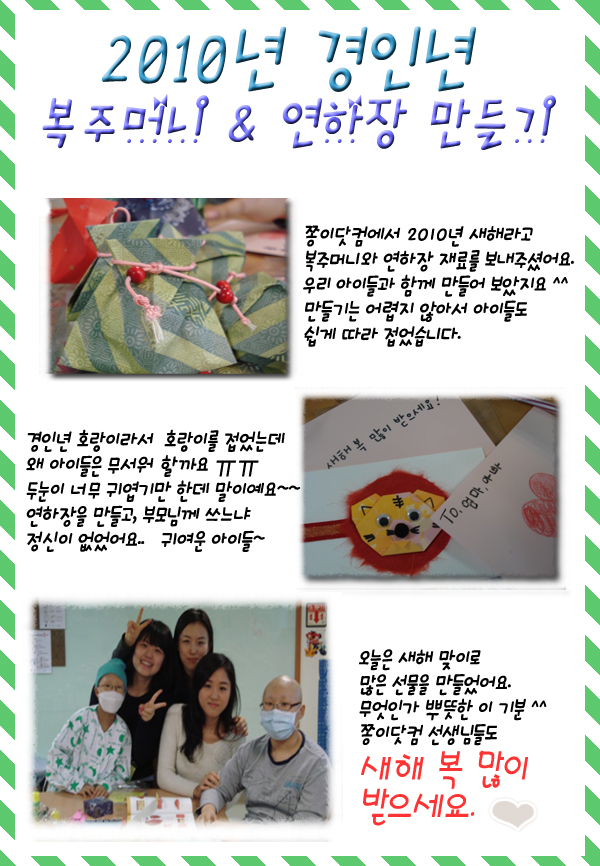 2010년 경인년
복주머니 & 연하장 만들기
쫑이닷컴에서 2010년 새해라고
복주머니와 연하장 재료를 보내주셨어요.
우리 아이들과 함께 만들어 보았지요 ^^
만들기는 어렵지 않아서 아이들도
쉽게 따라 접었습니다.
경인년 호랑이라서 호랑이를 접었는데
왜 아이들은 무서워 할까요 ㅠㅠ
두눈이 너무 귀엽기만 한데 말이예요~~
연하장을 만들고, 부모님께 쓰느냐
정신이 없었어요.. 귀여운 아이들~
새해 복 많이 받으세요!
To, 엄마, 아빠
오늘은 새해 맞이로
많은 선물을 만들었어요.
무엇인가 뿌뜻한 이 기분 ^^
쫑이닷컴 선생님들도
새해 복 많이
받으세요.